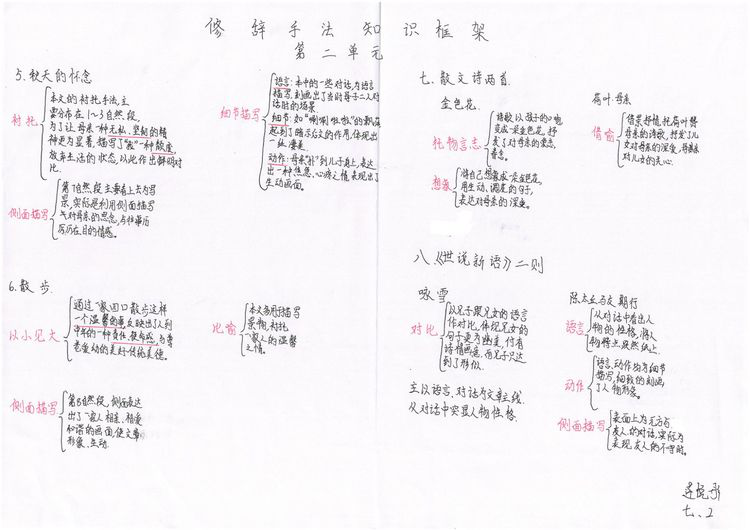 修辞手法知识框架
第二单元
5.秋天的怀念
衬托
本文的衬托手法,主
要分布在1~3自然段,
为了让母亲一种无私、坚韧的精
神更为显著,描写了"我"一种颓废,
放弃生活的状态,以此作出鲜明对
比.
侧面描写
第7自然段主要看上去为写
景,实际是利用侧面描写
细节描写
语言:本中的一些对话,为语言
描写.刻画出了当时母子二人对
话时的场景.
细节:如"唰唰啦啦"的飘落
起到了暗示后文的作用,体现出
一丝凄美.
动作:母亲"扑"到儿子身上,表达
出一种焦急、心疼之情表现出了
生动画面.
6.散步.
以小见大
通过一家四口散步这样
一个温馨的事,反映出了人到
中年的一种责任、使命感,与尊
老爱幼的美好传统美德。
侧面描写
第8自然段,侧面表达
出了一家人相亲、相爱
和谐的画面,使文章
形象、生动.
比喻
本文多用于描写
景物,衬托
一家人的温馨
之情。
七、散文诗两首.
金色花.
托物言志
诗歌以孩子的口吻
变成一朵金色花,抒
发了对母亲的爱恋、
想象
将自己想象成一朵金色花,
用生动、调皮的句子,
表达对母亲的深爱。
荷叶·母亲
借喻
借景抒情,托荷叶赞
母亲的诗歌,抒发了儿
女对母亲的深爱,母亲
对儿女的关心.
八、《世说新语》二则
咏雪
对比
以兄子跟兄女的语言
作对比,体现兄女的
句子更为幽美,付有
诗情画意,而兄子只达
到了形似.
主以语言、对话为文章主线.
从对话中突显人物性格.
陈太丘与友期行
语言
从对话中看出人
物的性格,将人
物特点跃然纸上.
动作
语言、动作均为细节
描写,细致的刻画
了人物形象。
侧面描写
表面上为元方与
友人的对话,实际为
表现友人的不守时。
七、2